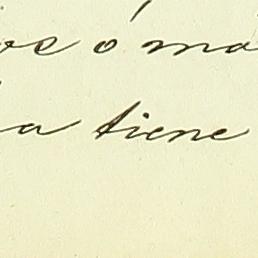 os ó ma
a tiene